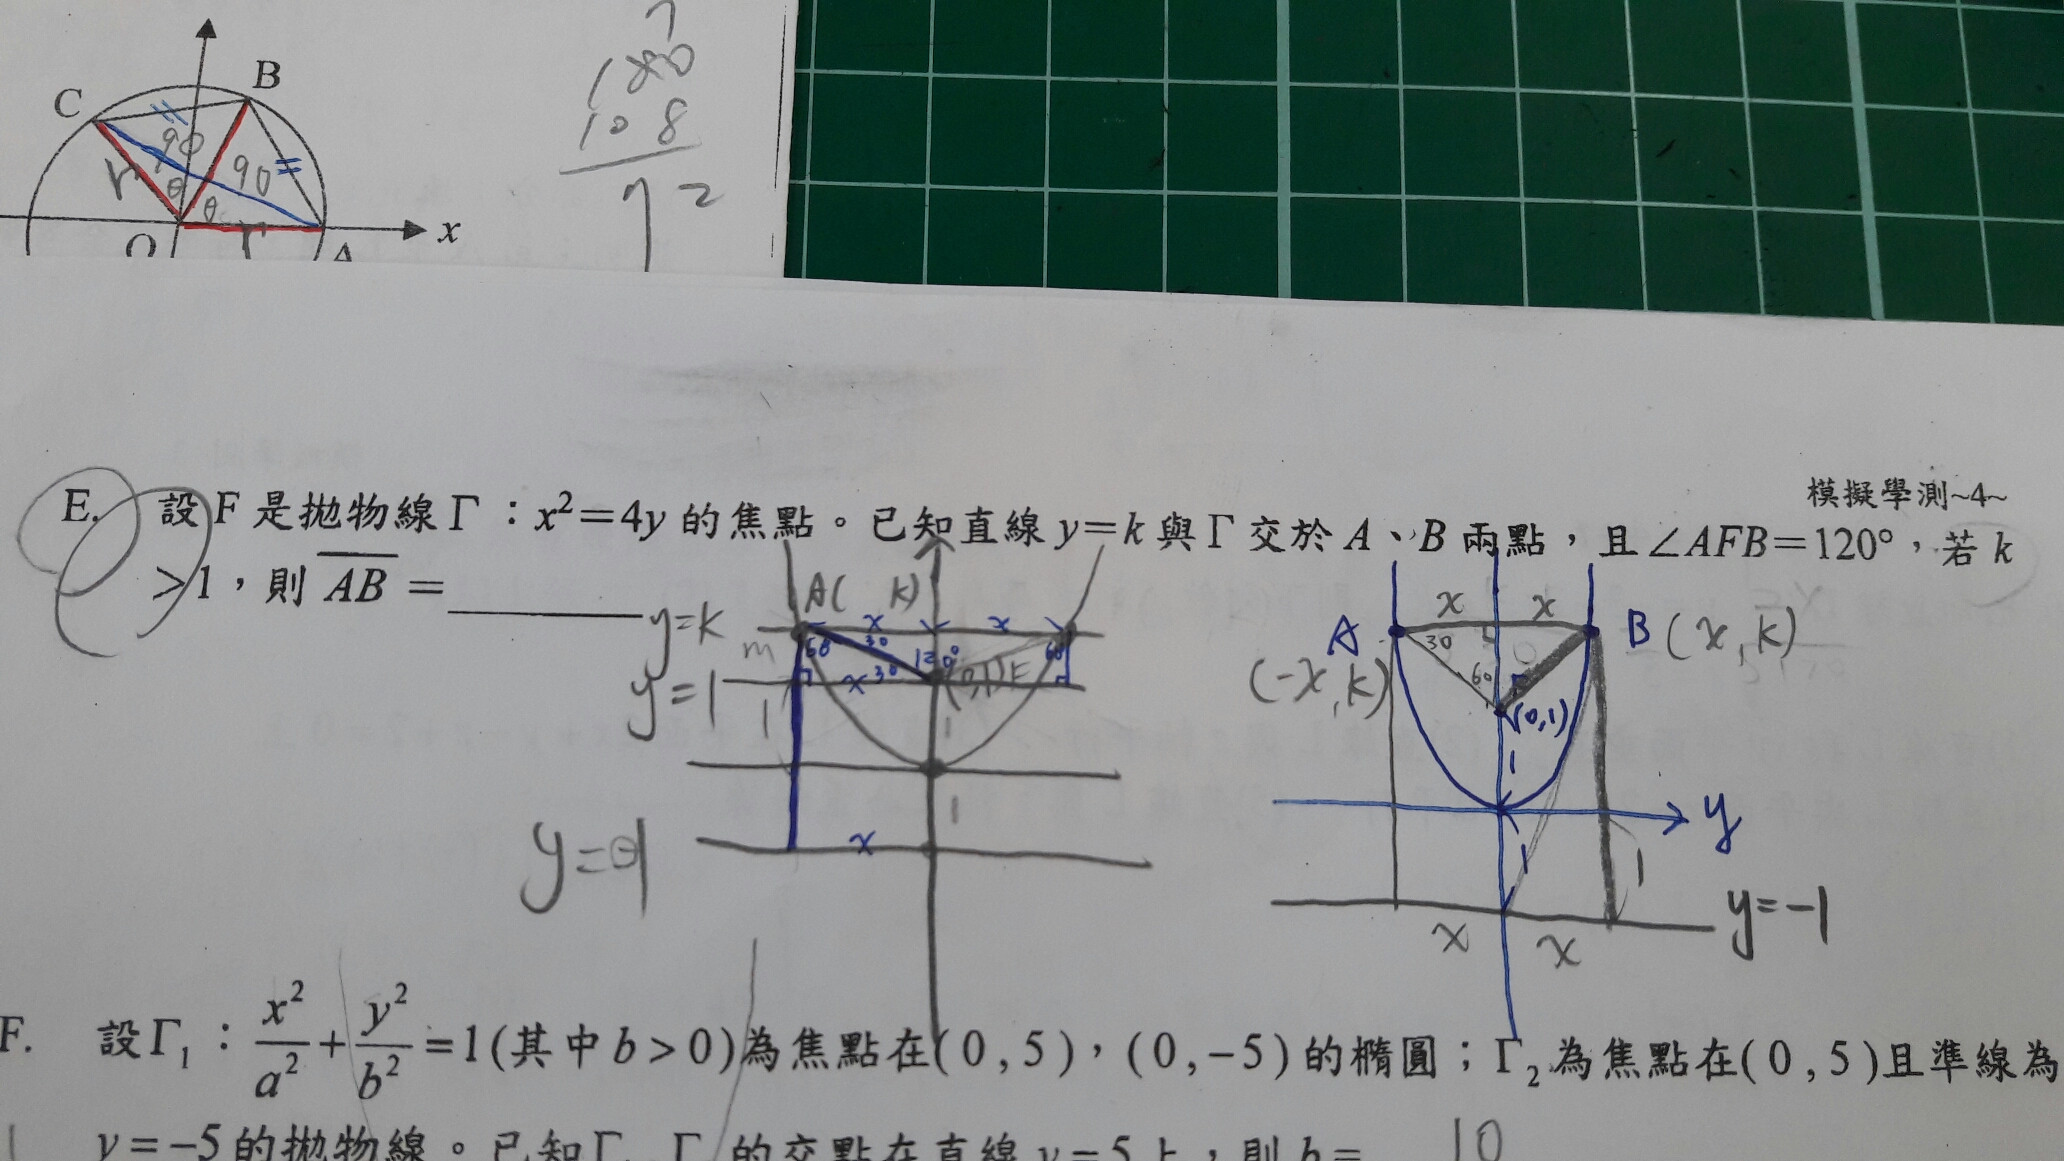 B
C
90
90
r
θ
θ
r
x
A
180
108
72
模擬學測~4~
E. 設F是拋物線Γ：x²=4y的焦點。已知直線y=k與Γ交於A、B兩點，且∠AFB=120°，若k
>1，則AB=________
y=k
A( k)
x
x
m
60
30
120°
60
y=1
x
30
(0,1)F
1
1
1
y=-1
x
x
x
A
B(x,k)
(-x,k)
30
60
F
(0,1)
1
y
1
1
y=-1
x
x
F. 設Γ₁：x²/a²+y²/b²=1(其中b>0)為焦點在(0,5)，(0,-5)的橢圓；Γ₂為焦點在(0,5)且準線為
y=-5的拋物線。已知Γ Γ 的交點在直線y=5上，則b= 10